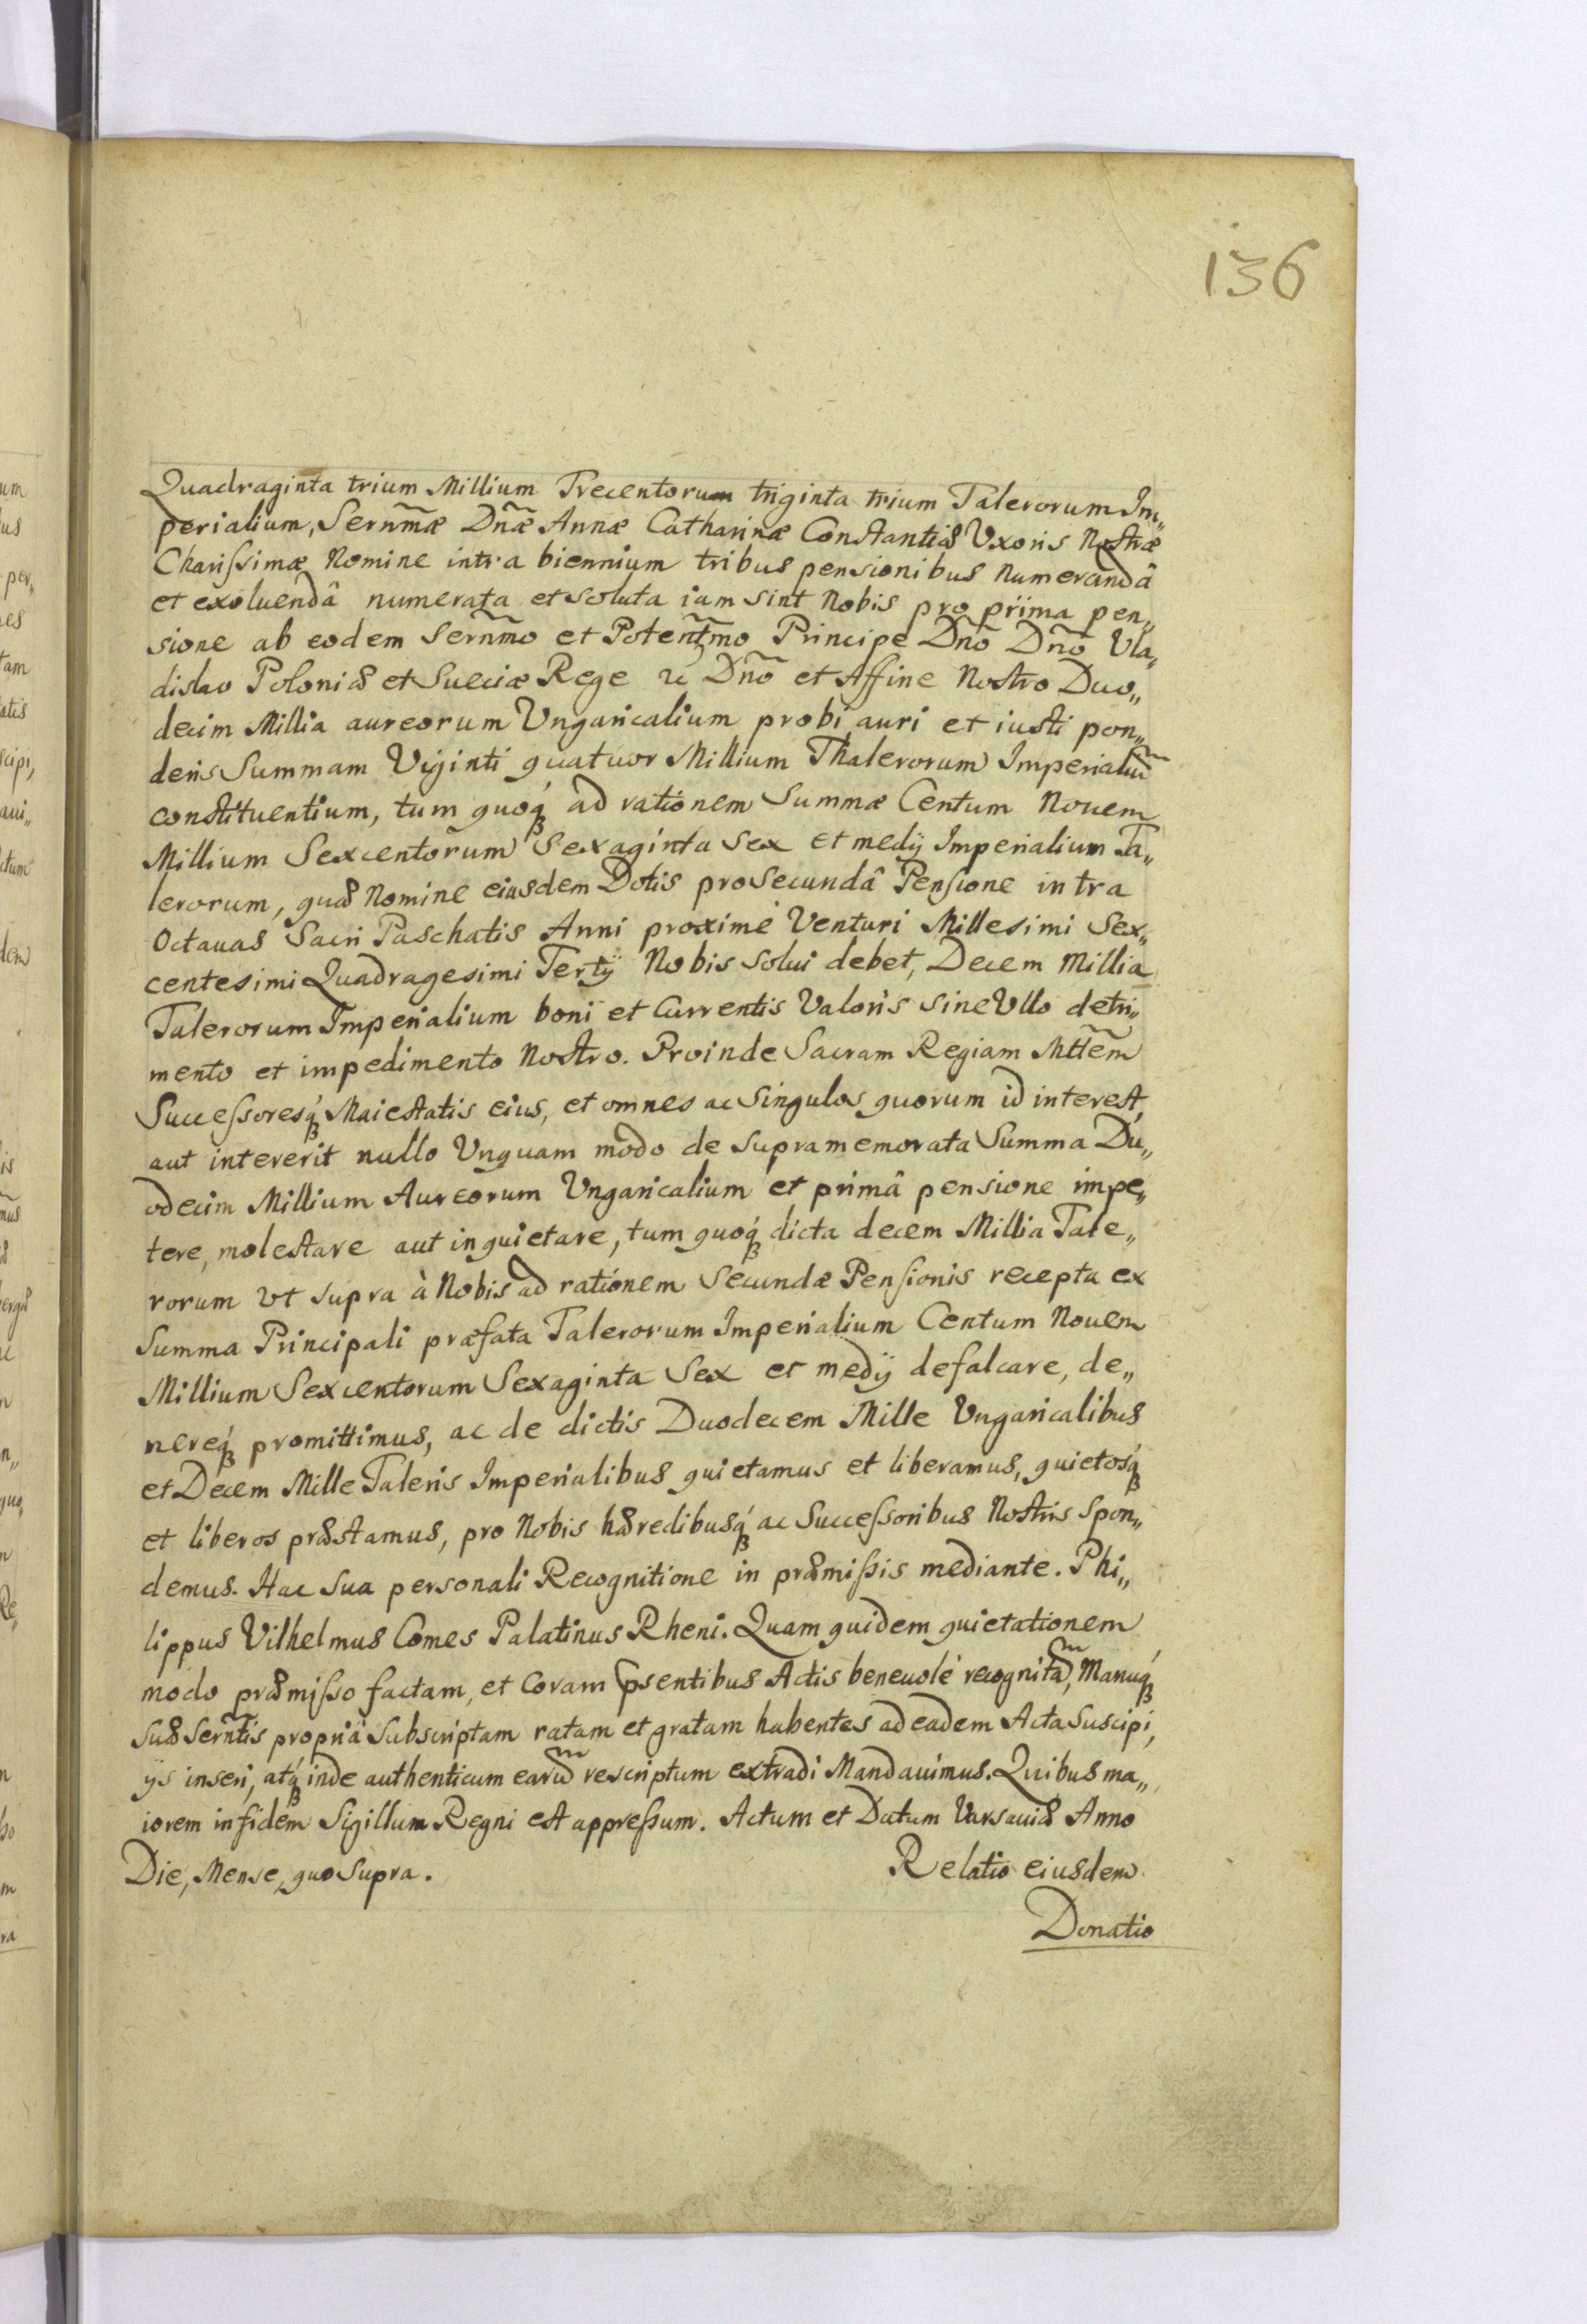 136
Quadraginta trium Millium Trecentorum triginta trium Talerorum Im„
perialium, Sernm̃æ Dnæ̃ Annæ Catharinæ Constantiæ Vxoris Nostræ
Charissimæ Nomine intra biennium tribus pensionibus numerandâ
et exoluendâ numerata et soluta iam sint Nobis pro prima pen„
sione ab eodem Sernm̃o et Potentm̃o Principe Dnõ Dnõ Vla„
dislao Poloniæ et Sueciæ Rege &c Dnõ et Affine Nostro Duo„
decim Millia aureorum Vngaricalium probi auri et iusti pon„
deris Summam Viginti quatuor Millium Thalerorum Imperialiũ
constituentium, tum quoq́ꝫ ad rationem Summæ Centum Nouem
Millium Sexcentorum Sexaginta Sex et medij Imperialium Ta„
lerorum, quæ Nomine eiusdem Dotis pro Secundâ Pensione intra
Octauas Sacri Paschatis Anni proximè Venturi Millesimi Sex„
centesimi Quadragesimi Tertij Nobis Solui debet, Decem Millia
Talerorum Imperialium boni et Currentis Valoris sine Vllo detri„
mento et impedimento Nostro. Proinde Sacram Regiam Mttẽm
Successoresq́ꝫ Maiestatis eius, et omnes ac Singulos quorum id interest,
aut intererit nullo Vnquam modo de supramemorata Summa Du„
odecim Millium Aureorum Vngaricalium et primâ pensione impe„
tere, molestare aut inquietare, tum quoq́ꝫ dicta decem Millia Tale„
rorum vt supra à Nobis ad rationem Secundæ Pensionis recepta ex
Summa Principali præfata Talerorum Imperialium Centum Nouem
Millium Sexcentorum Sexaginta Sex et medij defalcare, de„
nereq́ꝫ promittimus, ac de dictis Duodecem Mille Vngaricalibus
et Decem Mille Taleris Imperialibus quietamus et liberamus, quietosq́ꝫ
et liberos præstamus, pro Nobis hæredibusq́ꝫ ac Successoribus Nostris Spon„
demus. Hac Sua personali Recognitione in præmissis mediante. Phi„
lippus Vilhelmus Comes Palatinus Rheni. Quam quidem quietationem
modo præmisso factam, et Coram psentibus Actis beneuolè recognitã, Manuq́ꝫ
Suæ Serntis̃ propriâ Subscriptam ratam et gratam habentes ad eadem Acta Suscipi,
ijs inseri, atq́ꝫ inde authenticum earũ rescriptum extradi Mandauimus. Quibus ma„
iorem in fidem Sigillum Regni est appressum. Actum et Datum Varsauiæ Anno
Die, Mense, quo Supra. Relatio eiusdem
Donatio